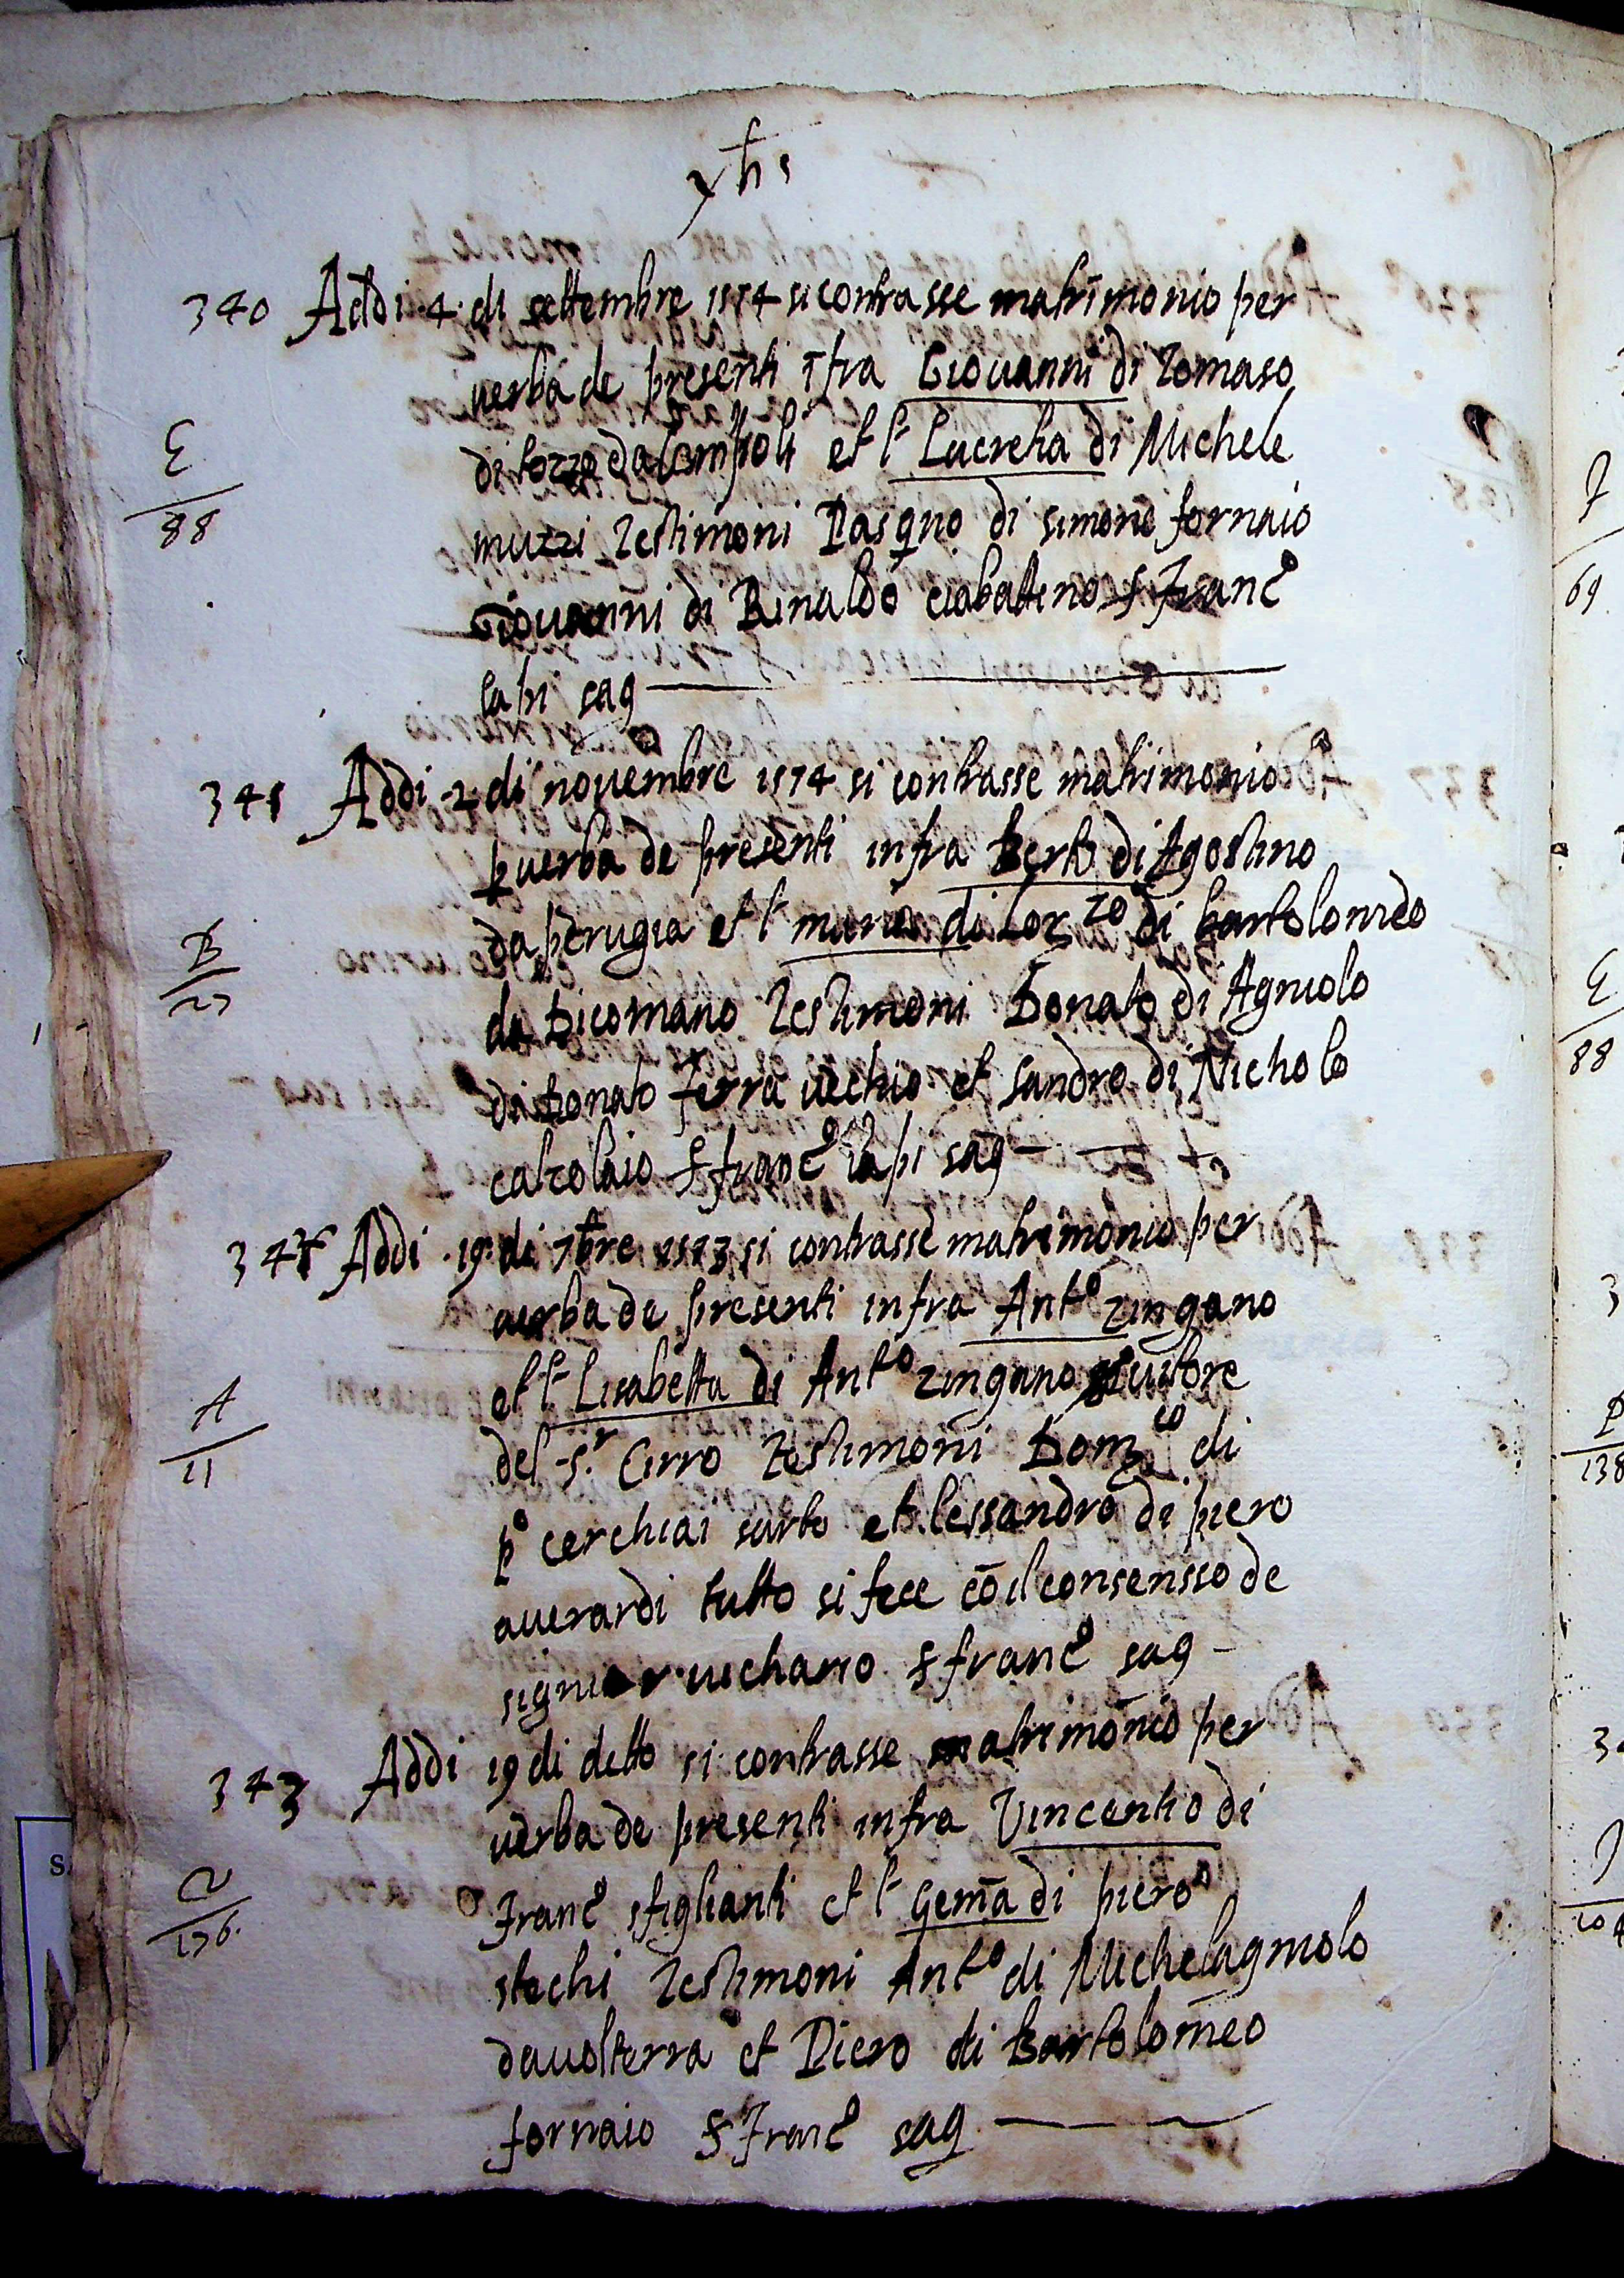 yhs
340 Addi 4 di settembre 1574 si contrasse matrimonio per
verba de presenti ifra Giovanni di Tomaso
di da et l^a Lucretia di Michele
muzzi Testimoni Pasq^no di simone fornaio
E
88
Giovanni di Rinaldo ciabattino f Franc^o
lapi sag
341 Addi 2 di novembre 1574 si contrasse matrimonio
p verba de presenti infra Berto di Agostino
da perugia et l^a maria di Lor^zo di bartolomeo
B
27
da Dicomano Testimoni Donato di Agniolo
di donato ferra vechio et sandro di Nicholo
calzolaio f franc^o lapi sag
342 Addi 19 di 7bre 1573 si contrasse matrimonio per
verba de presenti infra Ant^o zingano
et l^a Lisabetta di Ant^o zingano
A
11
del s^r Cirro Testimoni Dom^co di
p^o cerchiai sarto et lessandro di piero
averardi tutto si fece cō il consensso de
signior vichario f franc^o sag
343 Addi 19 di detto si contrasse matrimonio per
verba de presenti infra Vincentio di
Franc^o sfiglianti et l^a Gema di piero
V
176
stechi Testimoni Ant^o di Michelagniolo
da volterra et Piero di Bartolomeo
fornaio f Franc^o sag
69
E
88
138